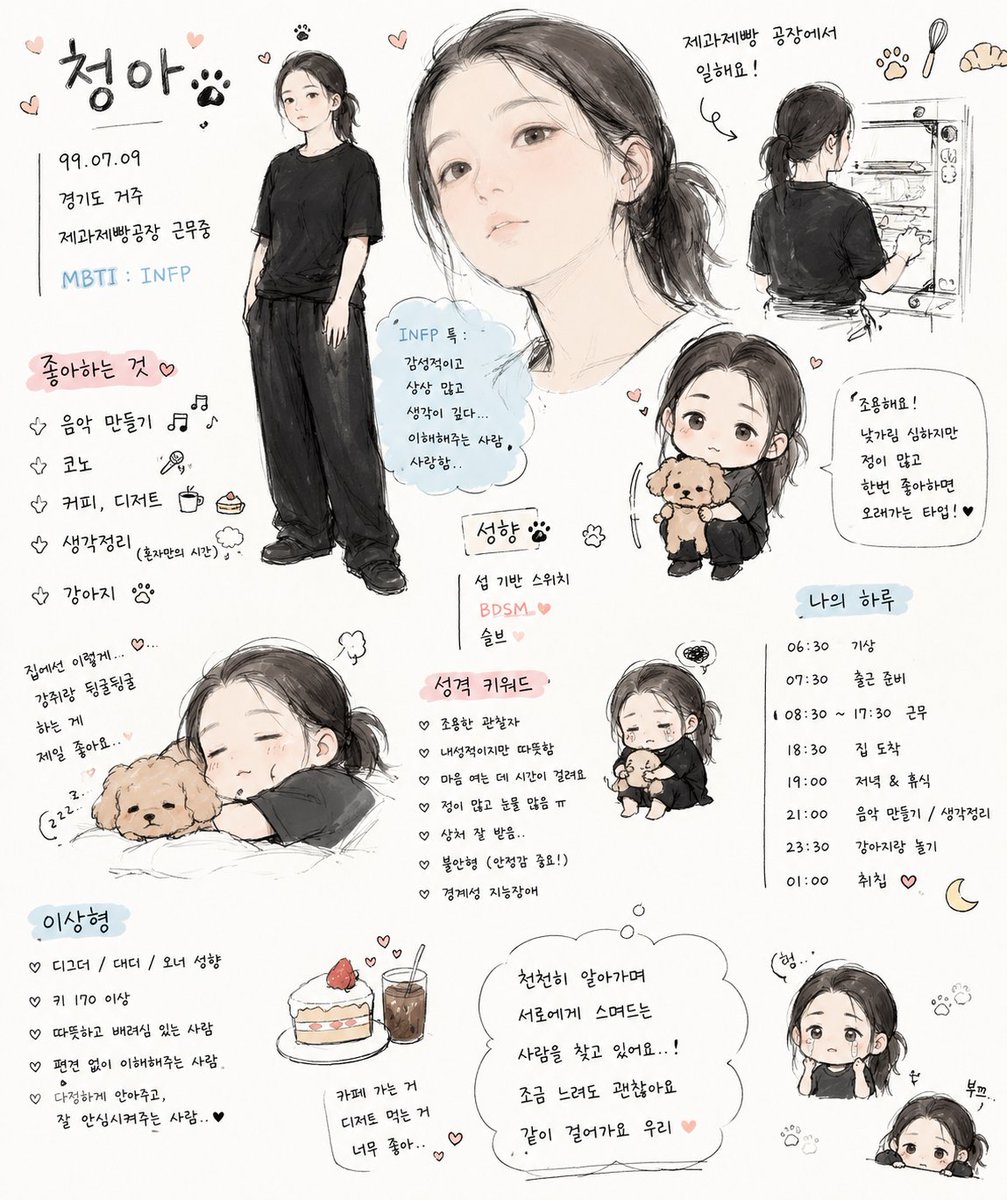 청아
99.07.09
경기도 거주
제과제빵공장 근무중
MBTI : INFP
제과제빵 공장에서
일해요!
INFP 특 :
감성적이고
상상 많고
생각이 깊다...
이해해주는 사람
사랑함..
좋아하는 것
음악 만들기
코노
커피, 디저트
생각정리 (혼자만의 시간)
강아지
조용해요!
낯가림 심하지만
정이 많고
한번 좋아하면
오래가는 타입!
성향
섭 기반 스위치
BDSM
슬브
나의 하루
06:30 기상
07:30 출근 준비
08:30 ~ 17:30 근무
18:30 집 도착
19:00 저녁 & 휴식
21:00 음악 만들기 / 생각정리
23:30 강아지랑 놀기
01:00 취침
집에선 이렇게...
강쥐랑 뒹굴뒹굴
하는 게
제일 좋아요..
zzz...
성격 키워드
조용한 관찰자
내성적이지만 따뜻함
마음 여는 데 시간이 걸려요
정이 많고 눈물 많음 ㅠ
상처 잘 받음..
불안형 (안정감 중요!)
경계성 지능장애
이상형
디그더 / 대디 / 오너 성향
키 170 이상
따뜻하고 배려심 있는 사람
편견 없이 이해해주는 사람
다정하게 안아주고,
잘 안심시켜주는 사람..
카페 가는 거
디저트 먹는 거
너무 좋아..
천천히 알아가며
서로에게 스며드는
사람을 찾고 있어요..!
조금 느려도 괜찮아요
같이 걸어가요 우리
힝..
부끄..